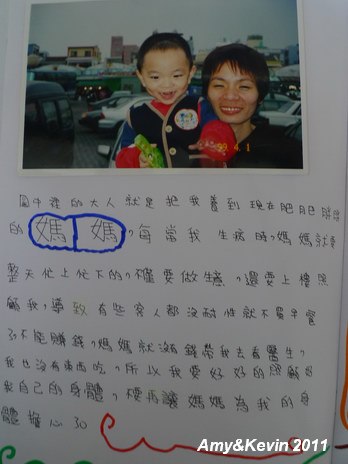 '99 4 1
圖中裡的大人就是把我養到現在肥肥胖胖
的媽媽,每當我生病時,媽媽就會
整天忙上忙下的,不僅要做生意,還要上樓照
顧我,導致有些客人都沒耐性就不買早餐
了不能賺錢,媽媽就沒有錢帶我去看醫生,
我也沒有東西吃,所以我要好好的照顧
我自己的身體,不要再讓媽媽為我的身
體擔心了。
Amy&Kevin 2011